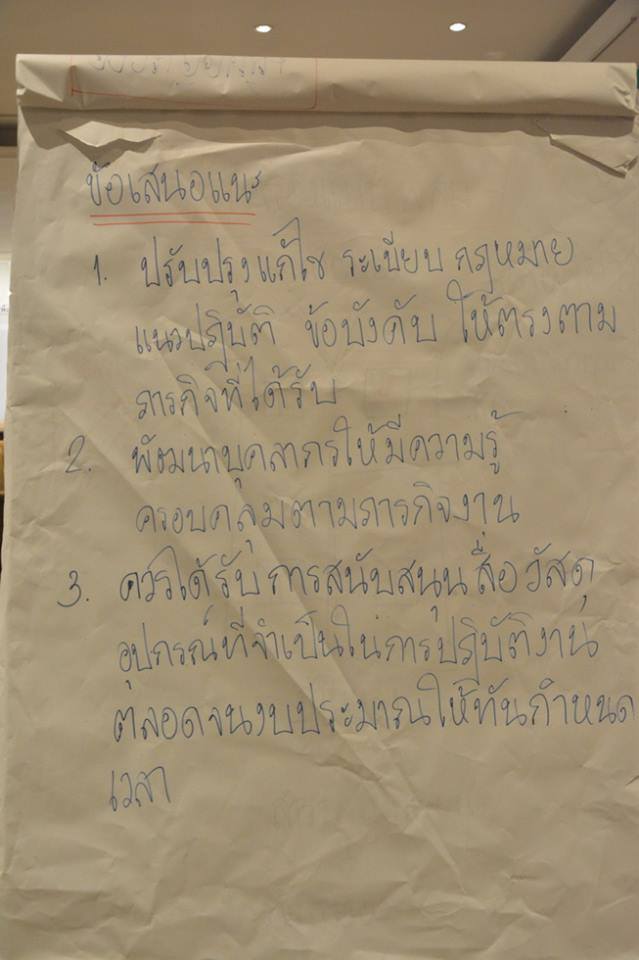 ข้อเสนอแนะ
1. ปรับปรุงแก้ไข ระเบียบ กฎหมาย
แนวปฏิบัติ ข้อบังคับ ให้ตรงตาม
ภารกิจที่ได้รับ
2. พัฒนาบุคลากรให้มีความรู้
ครอบคลุมตามภารกิจงาน
3. ควรได้รับการสนับสนุน สื่อ วัสดุ
อุปกรณ์ที่จำเป็นในการปฏิบัติงาน
ตลอดจนงบประมาณให้ทันกำหนด
เวลา